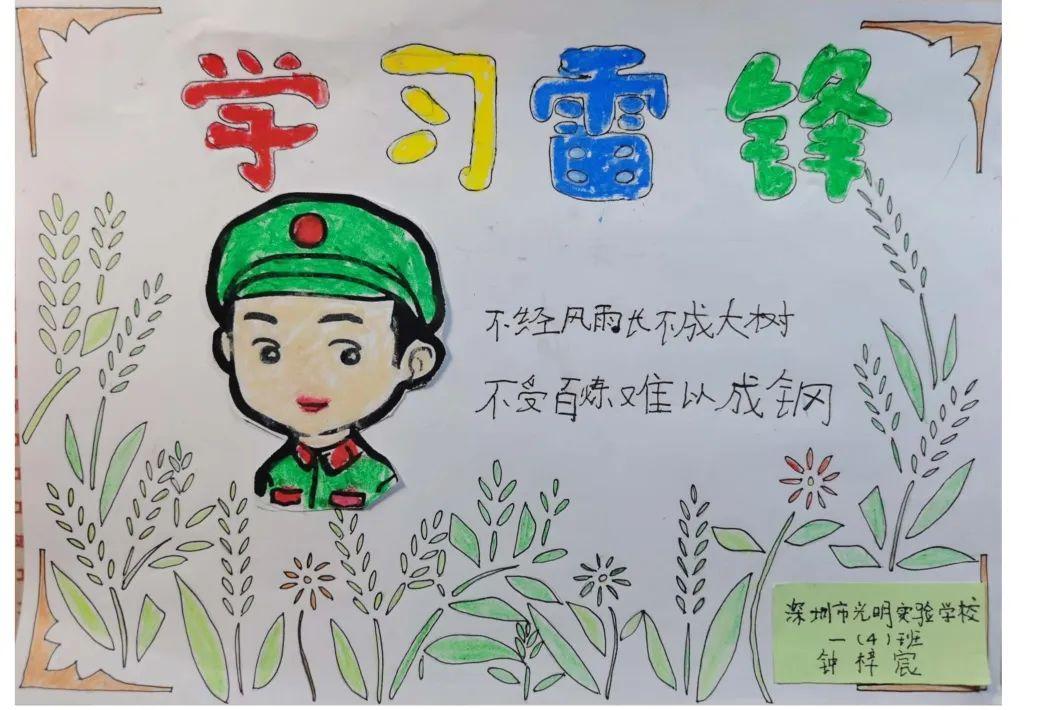 学习雷锋
不经风雨长不成大树
不受百炼难以成钢
深圳市光明实验学校
一(4)班
钟梓宸